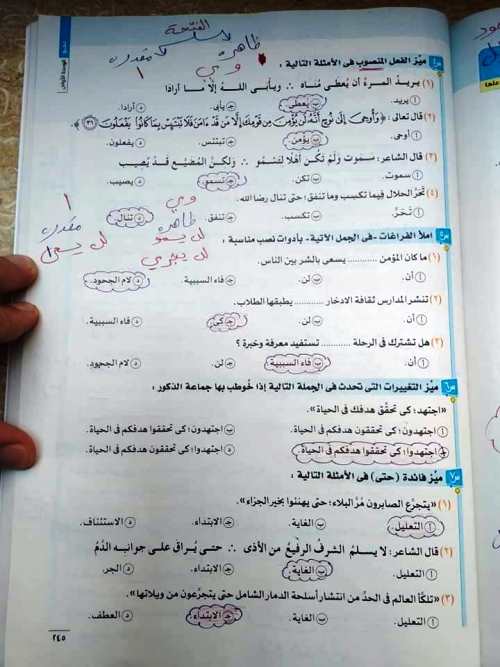 الفتحة
ظاهرة
مقدرة
و ي
ا
س٤ ميّز الفعل المنصوب فى الأمثلة التالية :
(١) يريدُ المرءُ أن يُعطَى مُناه ∴ ويأبَى اللهُ إلَّا ما أرادَا
أ يريد. ب يُعطَى. ج يأبى. د أرادا.
(٢) قال تعالى: ﴿وَأُوحِىَ إِلَىٰ نُوحٍ أَنَّهُۥ لَن يُؤْمِنَ مِن قَوْمِكَ إِلَّا مَن قَدْ ءَامَنَ فَلَا تَبْتَئِسْ بِمَا كَانُوا۟ يَفْعَلُونَ ٣٦﴾.
أ أوحى. ب يؤمن. ج تبتئس. د يفعلون.
(٣) قال الشاعر: سَموت ولَم تكُن أهلًا لتَسْمُو ∴ ولكنْ المُضيَّع قد يُصيب
أ سموت. ب تكن. ج تسمو. د يصيب.
(٤) تَحَرَّ الحلال فيما تكسب وما تنفق؛ حتى تنال رضا الله.
أ تَحَرَّ. ب تكسب. ج تنفق. د تنال.
و ي
ظاهرة
لن يسمو
لن يجري
ا
مقدرة
لن يسعى
س٥ املأ الفراغات -فى الجمل الآتية- بأدوات نصب مناسبة :
(١) ما كان المؤمن ............ يسعى بالشر بين الناس.
أ أن. ب لن. ج فاء السببية. د لام الجحود.
(٢) تنشر المدارس ثقافة الادخار ............ يطبقها الطلاب.
أ أن. ب لن. ج كى. د فاء السببية.
(٣) هل تشترك فى الرحلة ............ تستفيد معرفة وخبرة ؟
أ أن. ب فاء السببية. ج لن. د لام الجحود.
س٦ ميّز التغييرات التى تحدث فى الجملة التالية إذا خُوطب بها جماعة الذكور :
«اجتهد؛ كى تحقق هدفك فى الحياة».
أ اجتهدون؛ كى تحققون هدفكم فى الحياة. ب اجتهدون؛ كى تحققوا هدفكم فى الحياة.
ج اجتهدوا؛ كى تحققوا هدفكم فى الحياة. د اجتهدوا؛ كى تحققون هدفكم فى الحياة.
س٧ ميّز فائدة (حتى) فى الأمثلة التالية :
(١) «يتجرَّع الصابرون مُرَّ البلاء؛ حتى يهنئوا بخير الجزاء».
أ التعليل. ب الغاية. ج الابتداء. د الاستئناف.
(٢) قال الشاعر: لا يسلمُ الشرفُ الرفيعُ من الأذى ∴ حتى يُراق على جوانبه الدَّمُ
أ التعليل. ب الغاية. ج الابتداء. د الجر.
(٣) «تلكَّأ العالم فى الحدِّ من انتشار أسلحة الدمار الشامل حتى يتجرَّعون من ويلاتها».
أ التعليل. ب الغاية. ج الابتداء. د العطف.
٢٤٥